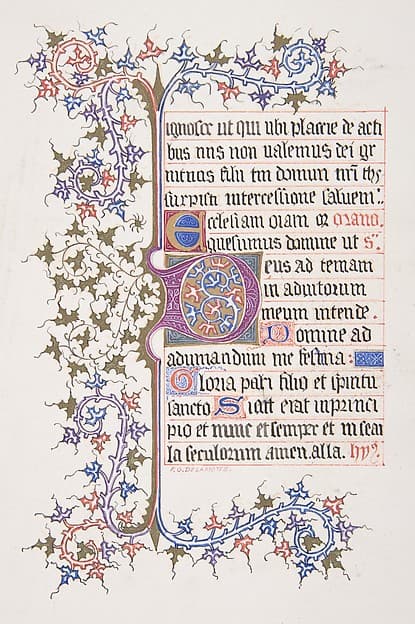 ignosce ut qui tibi placere de acti
bus nris non valemus dei gr
nitricis filii tui domini nri ihu
xpisti intercessione salvem.
Ecclesiam oram or orano.
quesumus domine ut s.
Deus ad
in adiutorum
meum intende.
Domine ad
adiuuandum me festina:
Gloria patri filio et spiritui
sancto Sicut erat in princi
pio et nunc et semper et in secu
la seculorum amen. alla. hy.
F. G. DELAMOTTE.